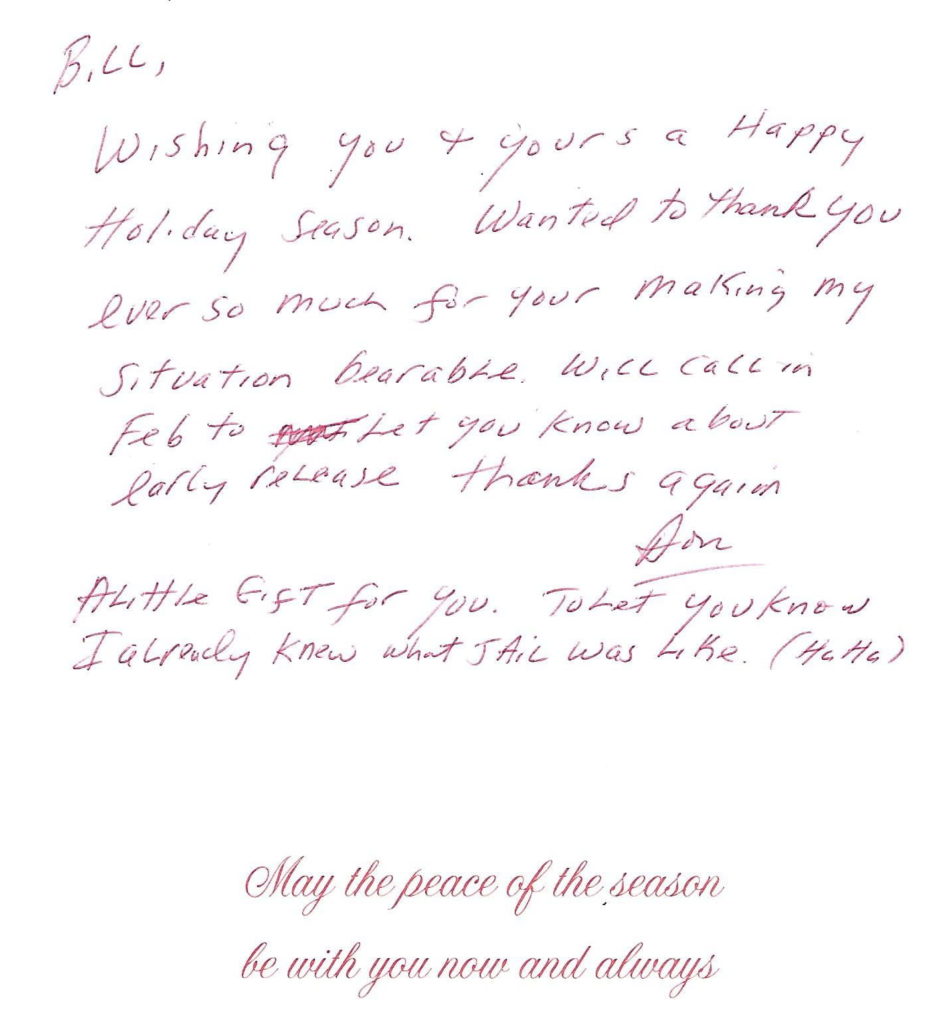 Bill,
Wishing you & yours a Happy
Holiday Season. Wanted to thank you
ever so much for your making my
situation bearable. Will call in
Feb to let you know about
early release thanks again
Don
A Little Gift for you. To Let you know
I already knew what JAil was Like. (HaHa)
May the peace of the season
be with you now and always